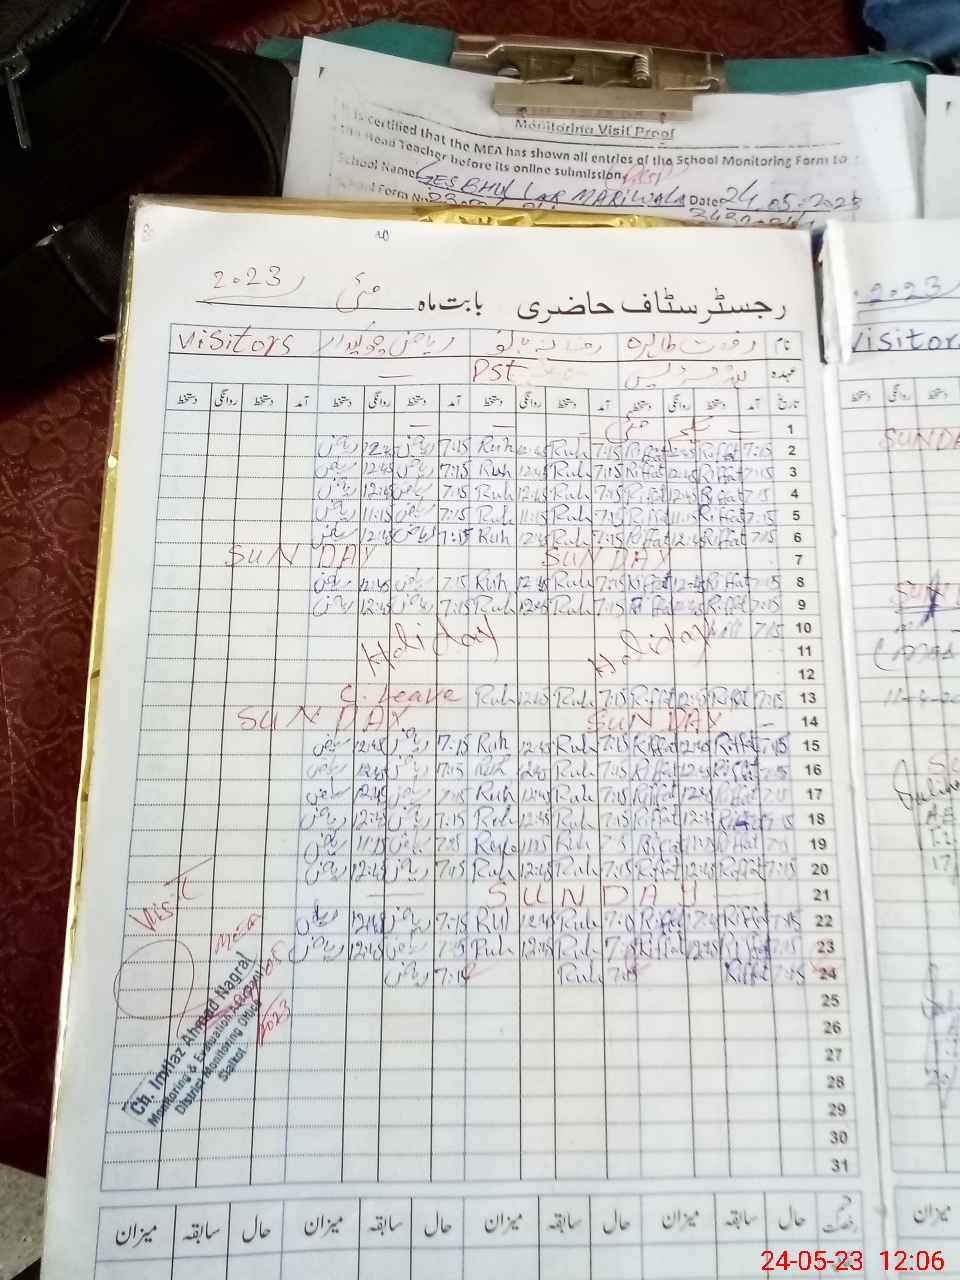 Monitoring Visit Proof
It is certified that the MEA has shown all entries of the School Monitoring Form to
the Head Teacher before its online submission.
School Name GES BHU LAR MARIWALA Date 24.05.2023
School Form No
رجسٹر سٹاف حاضری بابت ماہ مئی 2023
نام رفعت طاہرہ رخسانہ بانو ریاض چوکیدار Visitors
عہدہ PST —
تاریخ آمد دستخط روانگی دستخط آمد دستخط روانگی دستخط آمد دستخط روانگی دستخط آمد دستخط روانگی دستخط
1 — یکم مئی — — —
2 7:15 Riffat 12:45 Riffat 7:15 Ruh 12:45 Ruh 7:15 ریاض 12:45 ریاض
3 7:15 Riffat 12:45 Riffat 7:15 Ruh 12:45 Ruh 7:15 ریاض 12:45 ریاض
4 7:15 Riffat 12:45 Riffat 7:15 Ruh 12:45 Ruh 7:15 ریاض 12:45 ریاض
5 7:15 Riffat 11:15 Riffat 7:15 Ruh 11:15 Ruh 7:15 ریاض 11:15 ریاض
6 7:15 Riffat 12:45 Riffat 7:15 Ruh 12:45 Ruh 7:15 ریاض 12:45 ریاض
SUN DAY SUN DAY 7
8 7:15 Riffat 12:45 Riffat 7:15 Ruh 12:45 Ruh 7:15 ریاض 12:45 ریاض
9 7:15 Riffat 12:45 Riffat 7:15 Ruh 12:45 Ruh 7:15 ریاض 12:45 ریاض
10 7:15
Holiday Holiday 11
12
13 7:15 Riffat 12:45 Riffat 7:15 Ruh 12:45 Ruh C. Leave
SUN DAY SUN DAY — 14
15 7:15 Riffat 12:45 Riffat 7:15 Ruh 12:45 Ruh 7:15 ریاض 12:45 ریاض
16 7:15 Riffat 12:45 Riffat 7:15 Ruh 12:45 Ruh 7:15 ریاض 12:45 ریاض
17 7:15 Riffat 12:45 Riffat 7:15 Ruh 12:45 Ruh 7:15 ریاض 12:45 ریاض
18 7:15 Riffat 12:45 Riffat 7:15 Ruh 12:45 Ruh 7:15 ریاض 12:45 ریاض
19 7:15 Riffat 11:15 Riffat 7:15 Ruh 11:15 7:15 ریاض 11:15 ریاض
20 7:15 Riffat 12:45 Riffat 7:15 Ruh 12:45 Ruh 7:15 ریاض 12:45 ریاض
SUNDAY 21
22 7:15 Riffat 12:45 Riffat 7:15 Ruh 12:45 Ruh 7:15 ریاض 12:45 ریاض
23 7:15 Riffat 12:45 Riffat 7:15 Ruh 12:45 Ruh 7:15 ریاض 12:45 ریاض
24 7:15 Riffat Ruh 7:14 ریاض
25
26
27
28
29
30
31
Visit
MEA
2023
Ch. Imtiaz Ahmad Nagral
Monitoring & Evaluation Assistant
District Monitoring Office
Sialkot
رخصت حال سابقہ میزان حال سابقہ میزان حال سابقہ میزان حال سابقہ میزان
2023
Visitors
دستخط روانگی دستخط
SUNDA
میزان
24-05-23 12:06